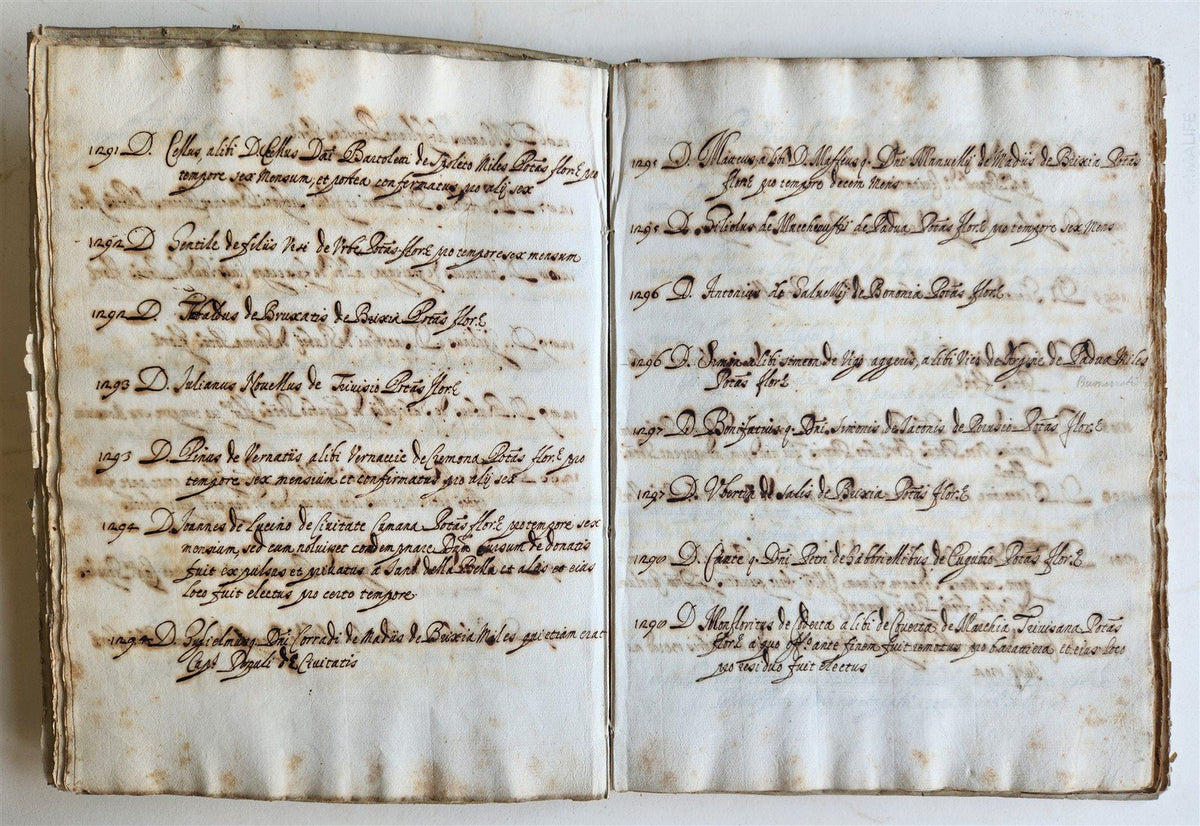 1291 D. Cellus, alibi D. Cellus Dñi Bartoleti de Spoleto Miles Potas flor.e pro
tempore sex Mensum, et postea confirmatus pro alijs sex
1292 D Gentile de filiis Ursi de Urbe Potas flor.e pro tempore sex mensum
1292 D. Tebaldus de Bruxatis de Brixia Potas flor.e
1293 D. Iulianus Novellus de Trivisio Potas flor.e
1293 D. Pinus de Vernatiis alibi Vernaccie de Cremona Potas flor.e pro
tempore sex mensium et confirmatus pro alijs sex
1294 D. Ioannes de Luccino de Civitate Cumana Potas flor.e pro tempore sex
mensium, sed cum noluisset condempnare Dnm Cursum de donatis
fuit expulsus et privatus a Iano della Bella et alius et eius
loco fuit electus pro certo tempore
1294 D. Gulielmus q. Dñi Corradi de Madiis de Brixia Miles qui etiam erat
Capt Populi de Civitatis
1295 D. Matteus, alibi D. Maffeus q. Dñi Manuelis de Madiis de Brixia Potas
flor.e pro tempore decem Mens
1295 D. Giliolus de Maccheruffis de Padua Potas flor.e pro tempore sex Mens
1296 D. Antonius de Galuccijs de Bononia Potas flor.e
1296 D. Simon alibi simeon de aggeris, alibi de de Padua Miles
Potas flor.e
1297 D. Bonifatius q. Dñi Simonis de Iaconis de Perusio Potas flor.e
1297 D. Ubertin de Salis de Brixia Potas flor.e
1298 D. Cante q. Dñi Petri de Gabbriellibus de Eugubio Potas flor.e
1298 D Monfloritus de Coderta alibi de Coverta de Marchia Trivisana Potas
flor.e a quo offo ante finem fuit remotus pro barattria et eius loco
pro residuo fuit electus